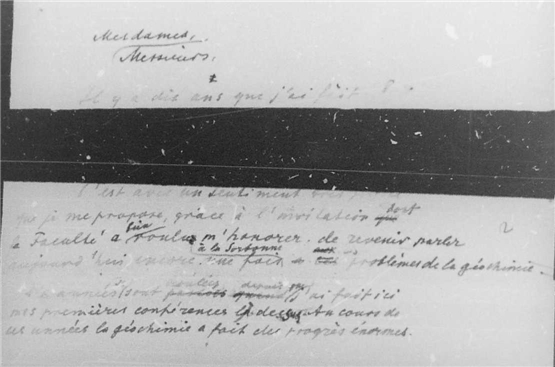 Mesdames,
Messieurs,
Il y a dix ans que j'ai fait
C'est avec un sentiment
que je me propose, grâce à l'invitation dont
la Faculté a bien voulu m'honorer, de revenir parler
à la Sorbonne
aujourd'hui encore une fois problèmes de la géochimie.
années sont j'ai fait ici
mes premières conférences là dessus. Au cours de
ces années la géochimie a fait des progrès énormes.